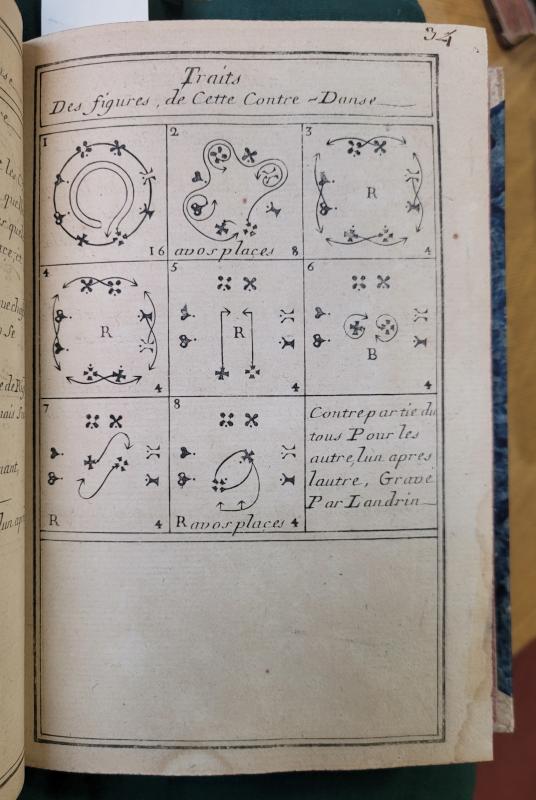 34
Traits
Des figures, de Cette Contre-Danse
1
16
2
avos places 8
3
R
4
4
R
4
5
R
4
6
B
4
7
R 4
8
R avos places 4
Contrepartie du
tous Pour les
autre, lun apres
lautre, Gravé
Par Landrin